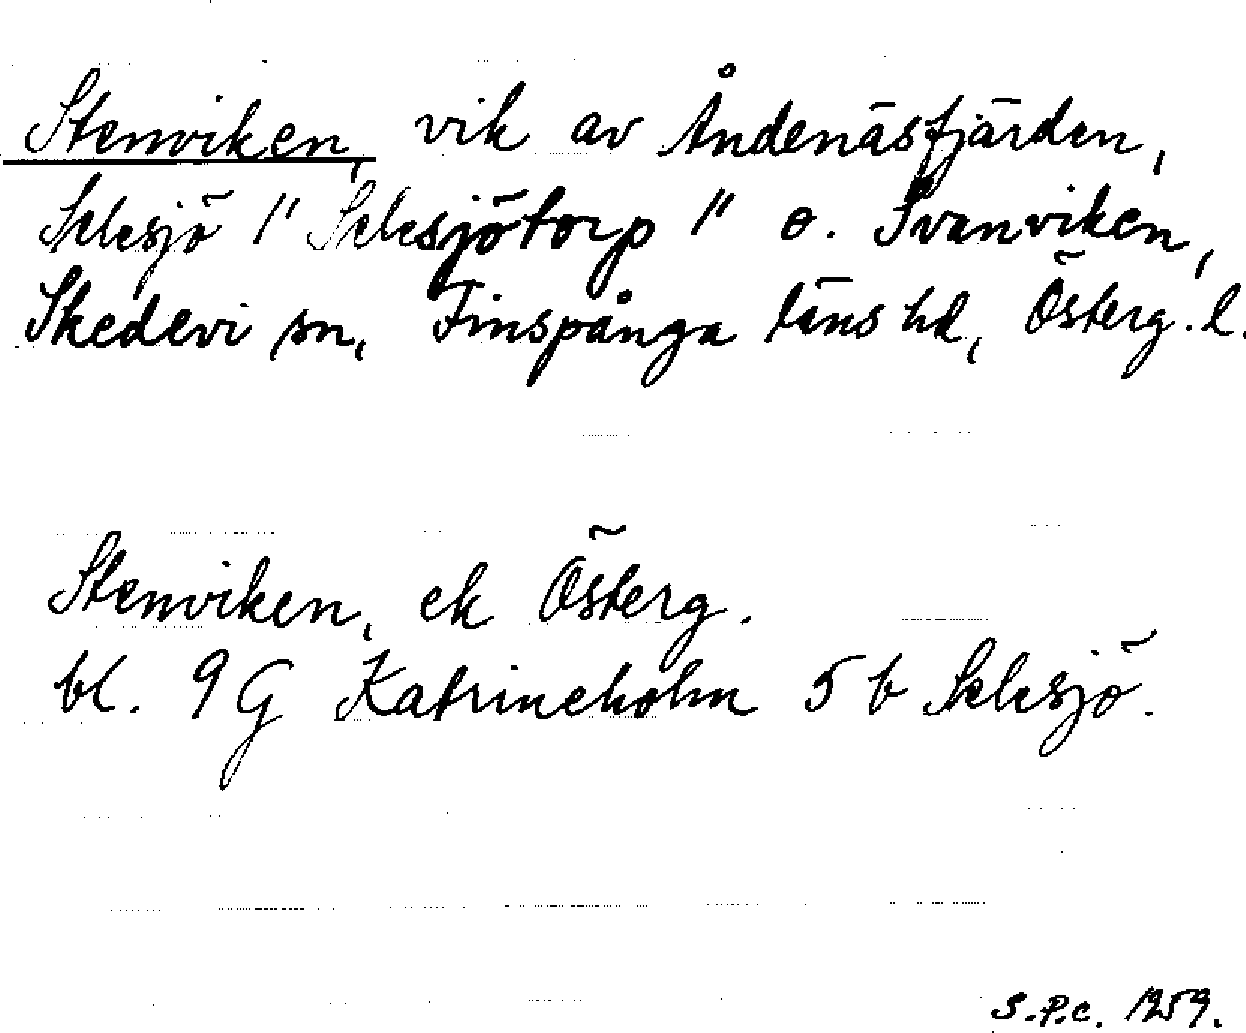 Stenviken, vik av Åndenäsfjärden,
Selesjö /" Selesjötorp /" o. Svanviken,
Skedevi sn, Finspånga läns hd, Österg. l.
Stenviken, ek Österg.
bl. 9 G Katrineholm 5 b Selesjö.
S.P.c. 1959.